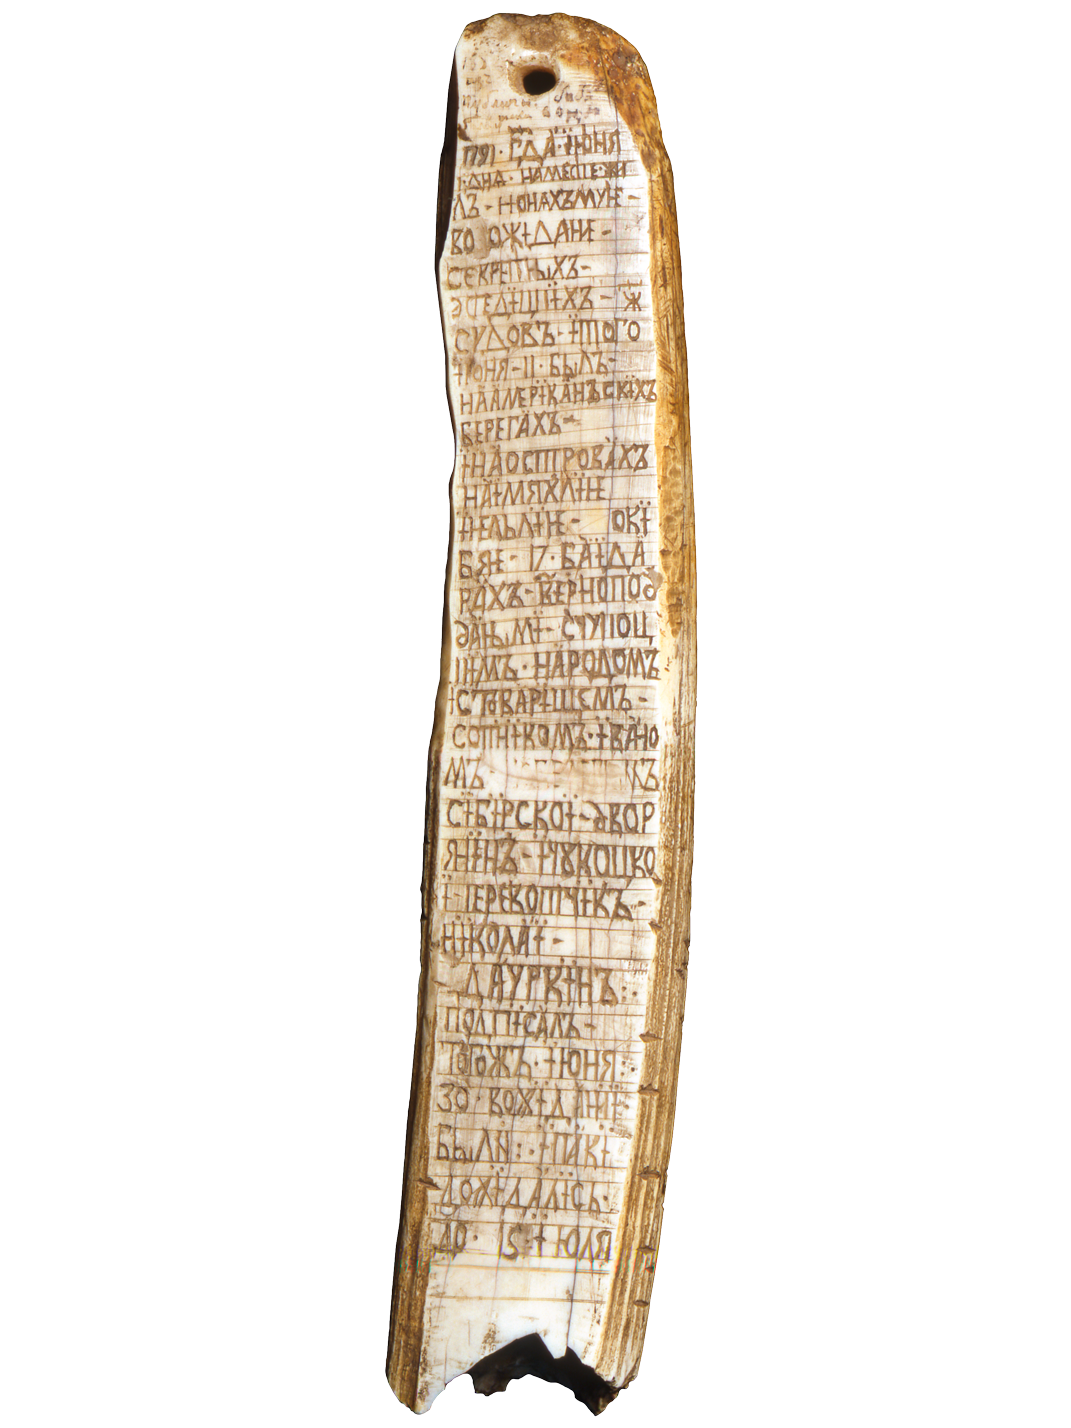 1791 · ГДА · ІЮНЯ
1 · ДНА · НАМЕСТЕ · ЖИ
ЛЪ - НОНАХЪМУНЕ -
ВО ОЖІДАНЕ -
СЕКРЕТНЫХЪ -
ЭПЕДІЦІІХЪ - Ж
СУДОВЪ - ІТОГО
ІЮНЯ - 11 · БЫЛЪ -
НААМЕРІКАНЪСКІХЪ
БЕРЕГАХЪ -
ІНАОСТРОВАХЪ
НАІМЯХЛІНЕ
ІНЕЛЬЛІНЕ - ОКІ
БЯНЕ - 17 · БАІДА
РАХЪ - ВЕРНОПОД
ДАНЫМІ - СЧУПОЦ
ІІМЪ · НАРОДОМЪ
ІСТОВАРІЩЕМЪ -
СОТНІКОМЪ · ІВАНО
МЪ
СІБІРСКОІ - ДВОР
ЯНІНЪ - ІЧУКОЦКО
І - ПЕРЕВОТЧІКЪ -
НІКОЛАІ -
ДАУРКІНЪ :
ПОДПІСАЛЪ -
ТОГОЖЪ · ІЮНЯ :
30 · ВОЖІДАНІЕ
БЫЛИ : ІПАКІ
ДОЖІДАЛІСЬ ·
ДО · 15 · ІЮЛЯ